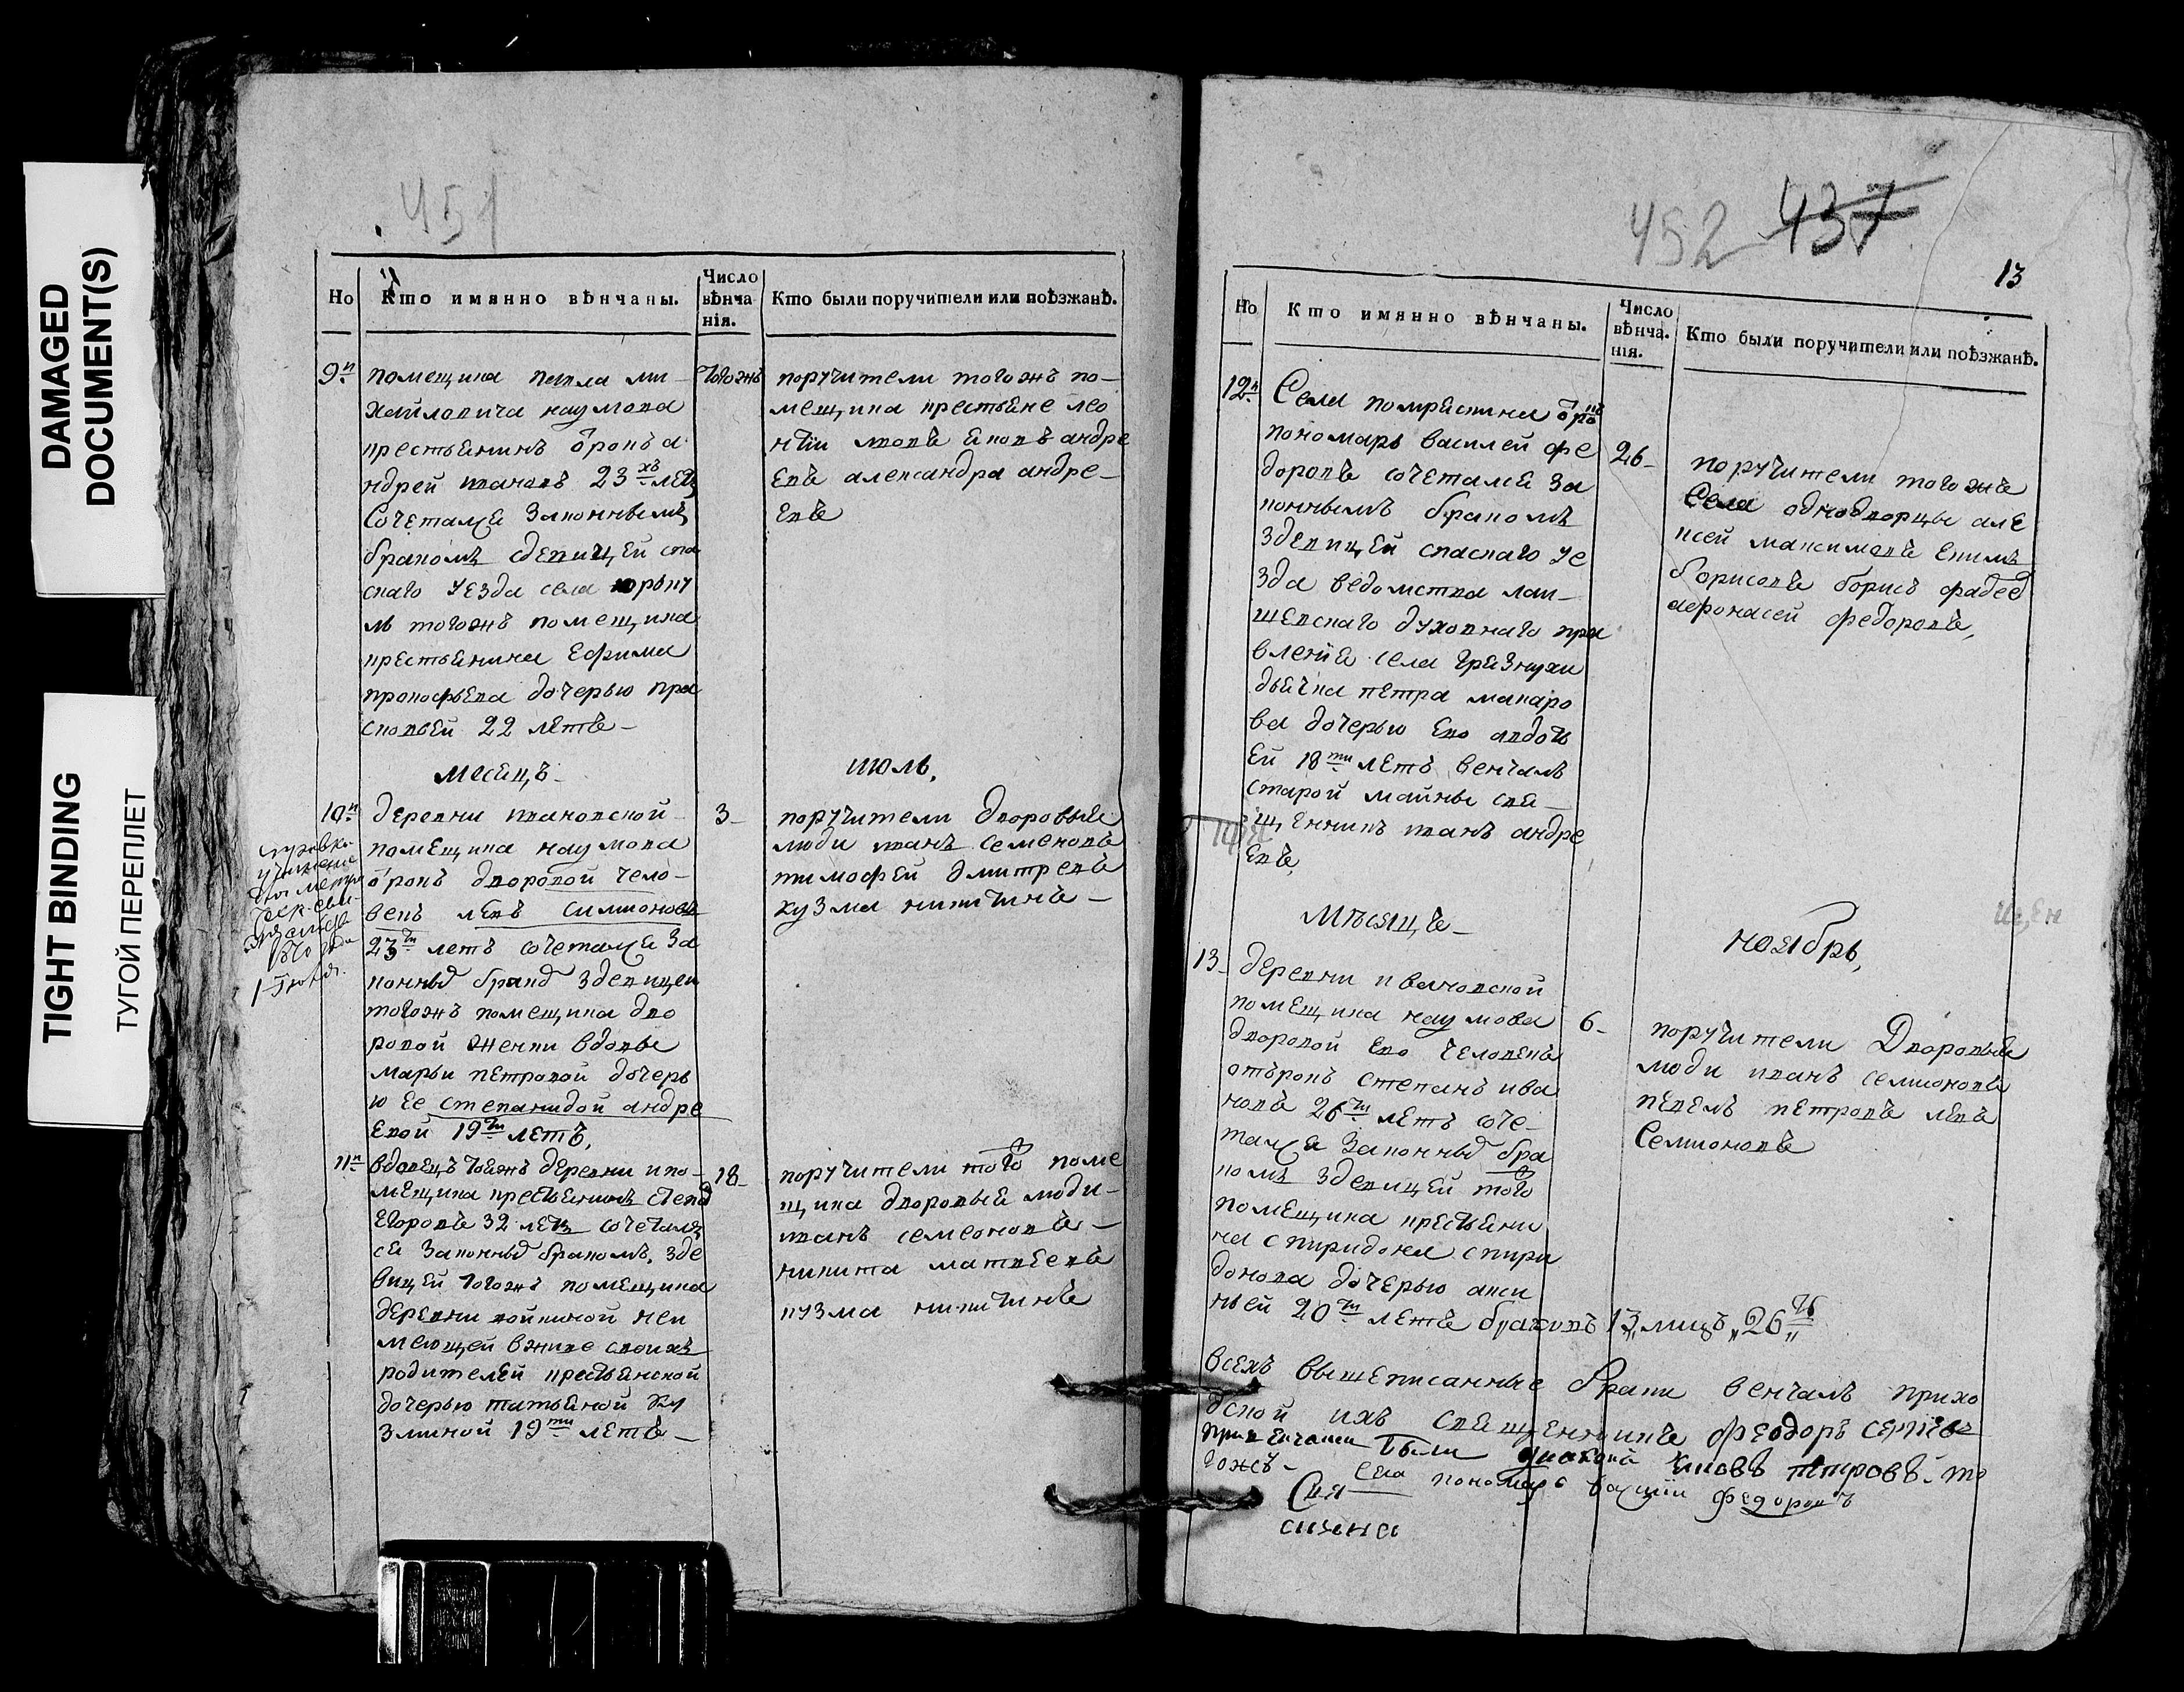 DAMAGED
DOCUMENT(S)
TIGHT BINDING
ТУГОЙ ПЕРЕПЛЕТ
451
Но
Кто имянно вѣнчаны.
Число
вѣнча
нія.
Кто были поручители или поѣзжанѣ.
9й
помещика павла ми-
хайловича наумова
крестьянинъ отрокъ а
ндрей ивановъ 23хъ летъ
сочетался законнымъ
бракомъ сдевицей спа
скаго уезда села юрьку
ль тогожъ помещика
крестьянина Ефима
прокофьева дочерью пра
сковьей 22 летъ-
тогожъ
поручители тогожъ по-
мещика крестьяне лео
нтiи яковъ андре
евъ александра андре-
евъ
месяцъ-
июль,
10й
деревни ивановской
помещика наумова
отрокъ дворовой чело-
векъ левъ симионовъ
23ти летъ сочетался за
конным браком здевицеи
тогожъ помещика дво
ровой женки вдовы
марьи петровой дочерь
ю ее степанидой андре
евой 19ти летъ,
3-
поручители дворовые
люди иванъ семеновъ
тимофей дмитревъ
кузма никитинъ-
справка
1 Июля.
11й
вдовецъ тояжъ деревни и по-
мещика крестьянинъ
Егоровъ 32 летъ сочетал
ся законным бракомъ, зде
вицей тогожъ помещика
деревни войкиной неи
меющей вживе своихъ
родителей крестьянской
дочерью татьяной ку
зминой 19ти летъ-
18-
поручители того поме
щика дворовыя люди-
иванъ семеоновъ-
никита матвеевъ
кузма никитинъ
452 437
13
Но
Кто имянно вѣнчаны.
Число
вѣнча.
нія.
Кто были поручители или поѣзжанѣ.
12й
Села помряскина отрокъ
пономарь василей фе
доровъ сочетался за
коннымъ бракомъ
здевицей спаскаго уе
зда ведомства лаи-
шевскаго духовнаго пра
вления села грязнухи
дьячка петра макаро
ва дочерью ево авдоть
ей 18ти летъ венчалъ
старой майны свя-
щенникъ иванъ андре
евъ,
26-
поручители тогоже
села однодворцы але
ксей максимовъ екимъ
борисовъ борисъ фадеев
афонасей федоровъ,
Мѣсяцъ-
ноябрь,
13-
деревни ивановской
помещика наумова
дворовой ево человекъ
отърокъ степанъ ива
новъ 26ти летъ соче-
тался законным бра
комъ здевицей того
помещика крестьяни
на спиридона спири
донова дочерью акси
ньей 20ти летъ браковъ 13 лицъ 26ть
6-
поручители Дворовыя
люди иванъ семионовъ
павелъ петровъ левъ
Семионовъ
всехъ вышеписанные браки венчалъ прихо
дской ихъ священникъ Феодоръ Сергiевъ
при венчании были диаконъ петровъ-то
гожъ- села пономарь василiи Федоровъ